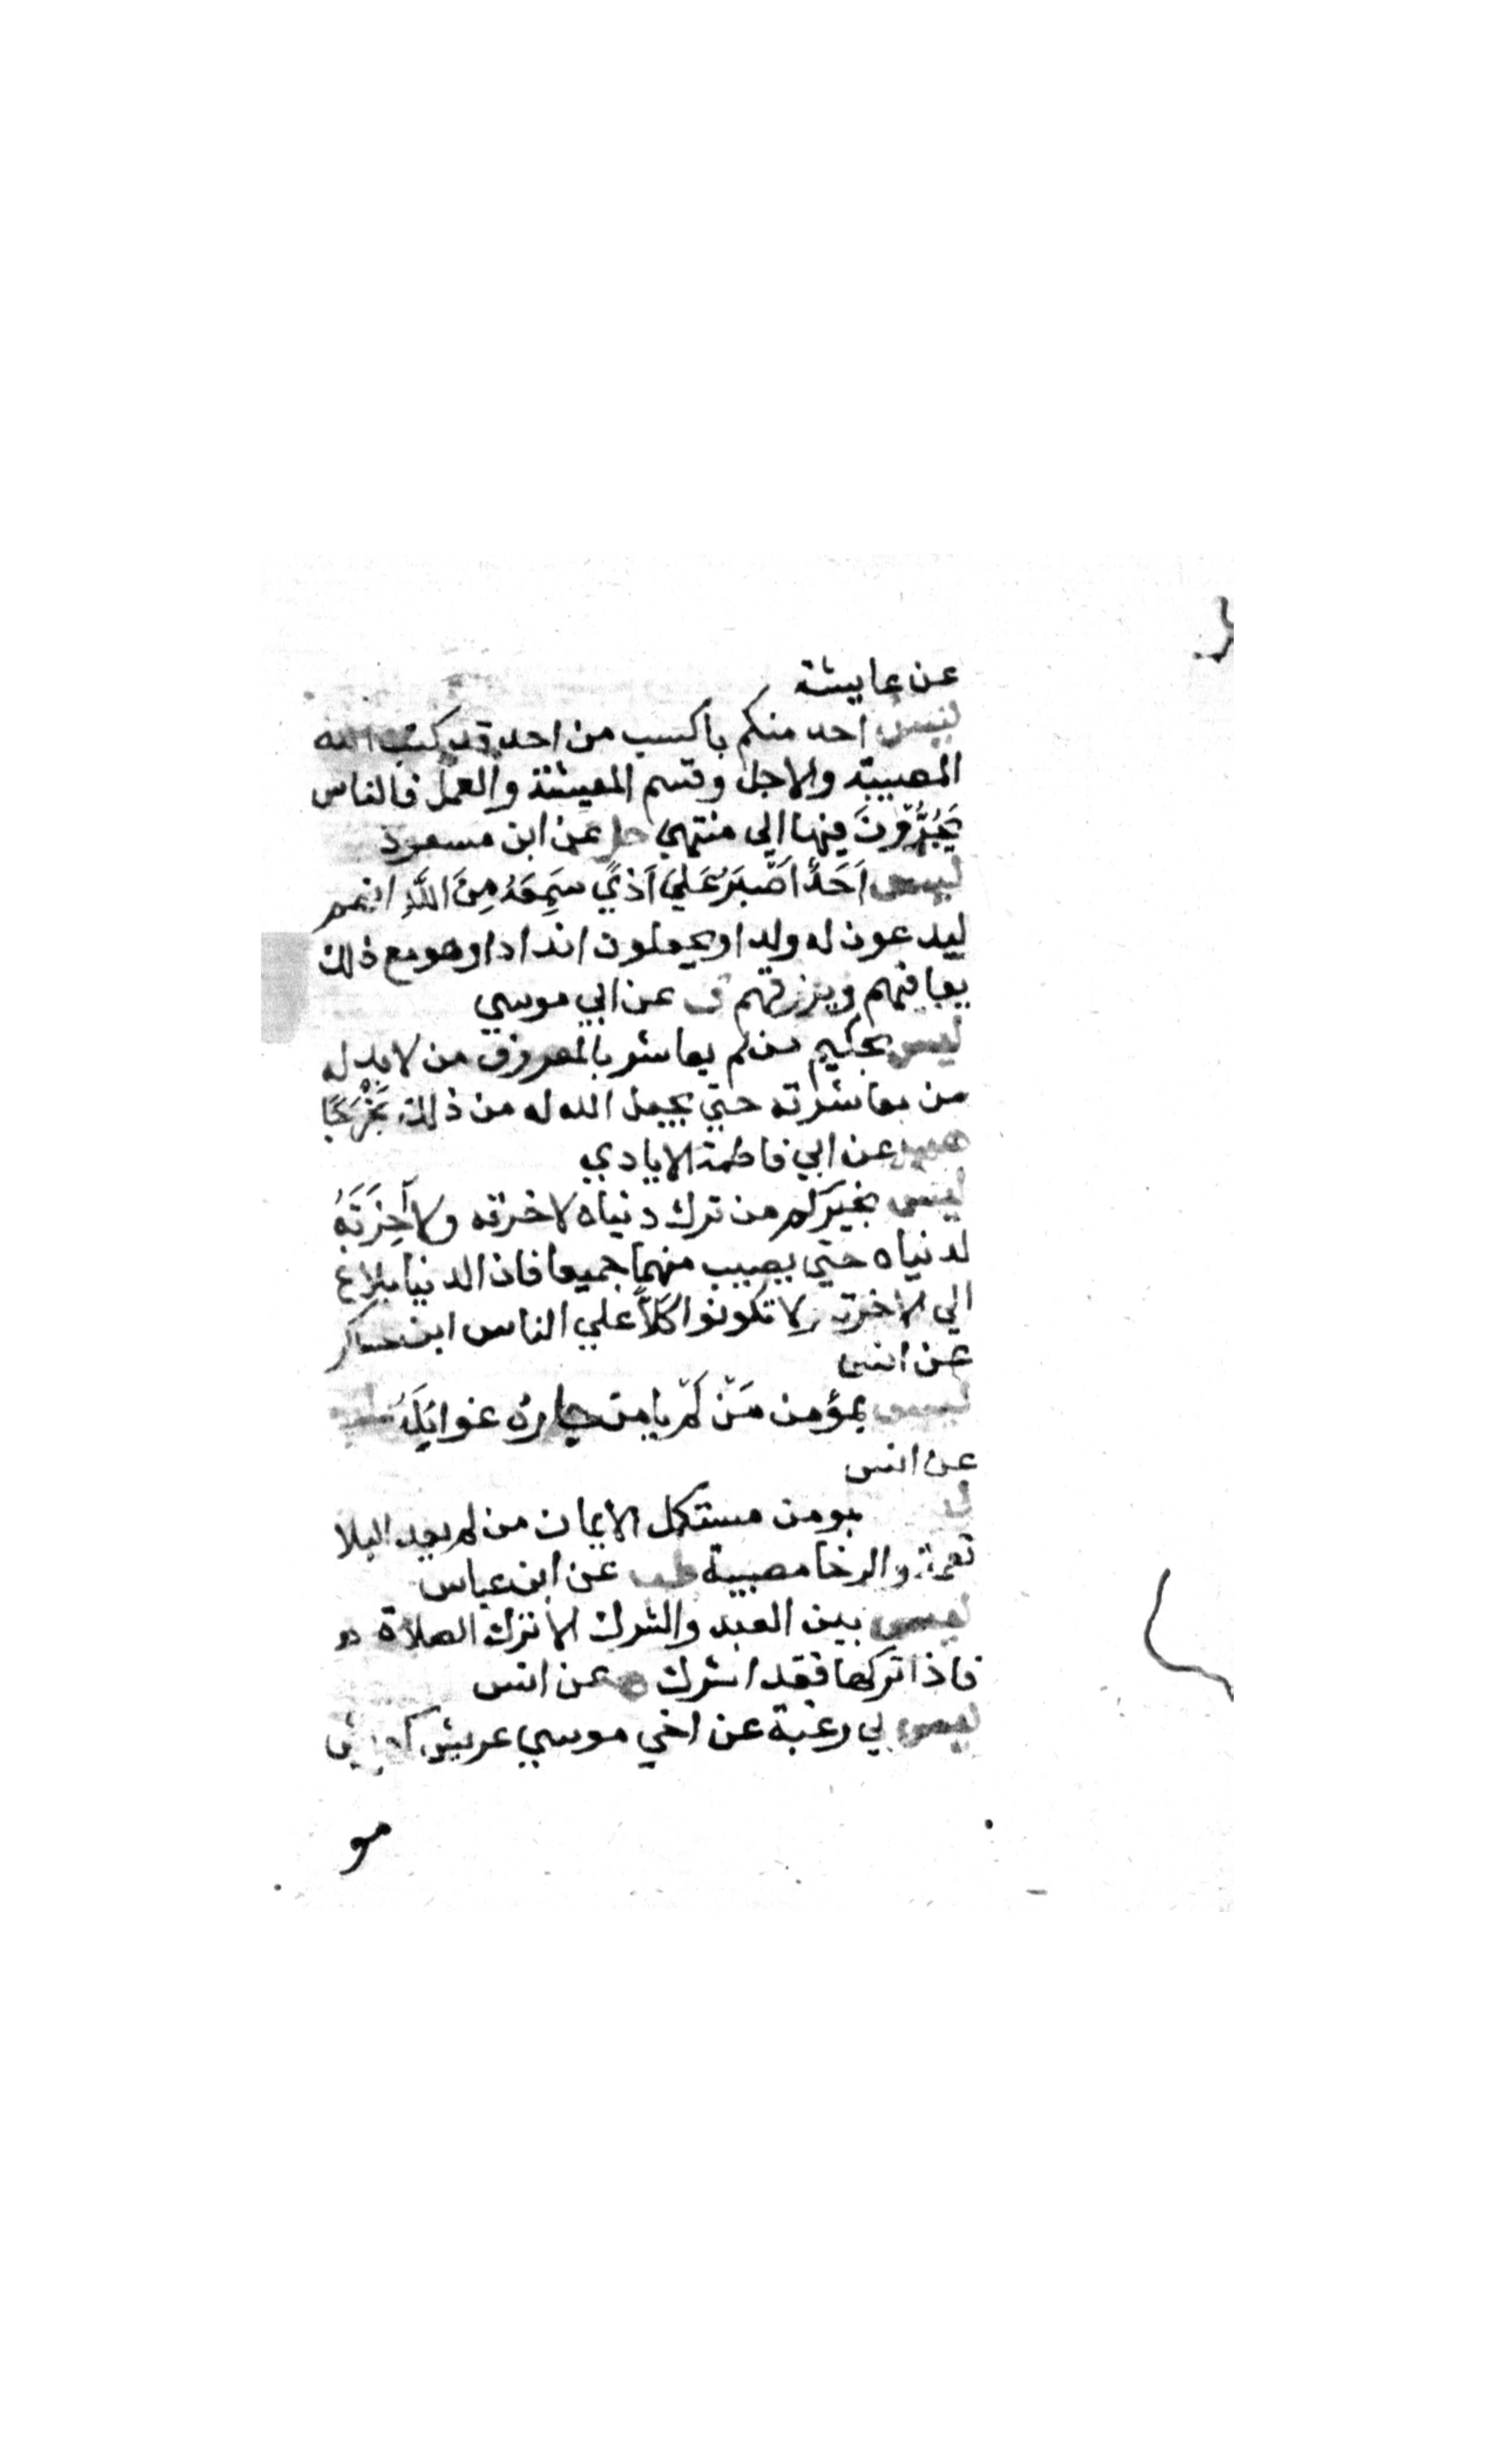 عن عايشة
ليس احد منكم باكسب من احد قد كتب الله
المصيبة والاجل وقسم المعيشة والعمل فالناس
يَجْرُونَ فيها الي منتهي حل عن ابن مسعود
ليس اَحَدٌ اَصْبَرُ عَلَيَ اَذيً سَمِعَهُ مِنَ اللَّهِ انهم
ليدعون له ولدا ويجعلون اندادا وهو مع ذلك
يعافيهم ويرزقهم ق عن ابي موسي
ليس بحليم من لم يعاشر بالمعروف من لا بد له
من معاشرته حتي يجعل الله له من ذلك مَخْرَجًا
هب عن ابي فاطمة الايادي
ليس بخيركم من ترك دنياه لاخرته ولا آخِرَتَهُ
لدنياه حتي يصيب منهما جميعا فان الدنيا بلاغ
الي الاخرة ولا تكونوا كَلاًّ علي الناس ابن عساكر
عن انس
ليس بمؤمن مَنْ لَمْ يامن جارهُ غوايلَهُ
عن انس
بمومن مستكمل الايمان من لم يعد البلا
نعمة والرخا مصيبة طب عن ابن عباس
ليس بين العبد والشرك الا ترك الصلاة
فاذا تركها فقد اشرك ه عن انس
ليس لي رغبة عن اخي موسي عريش كعريش
مو